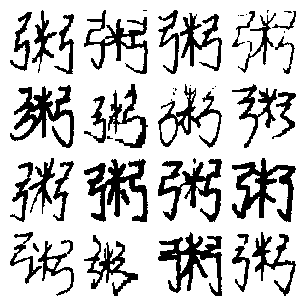 粥粥粥粥
粥粥粥粥
粥粥粥粥
粥粥粥粥